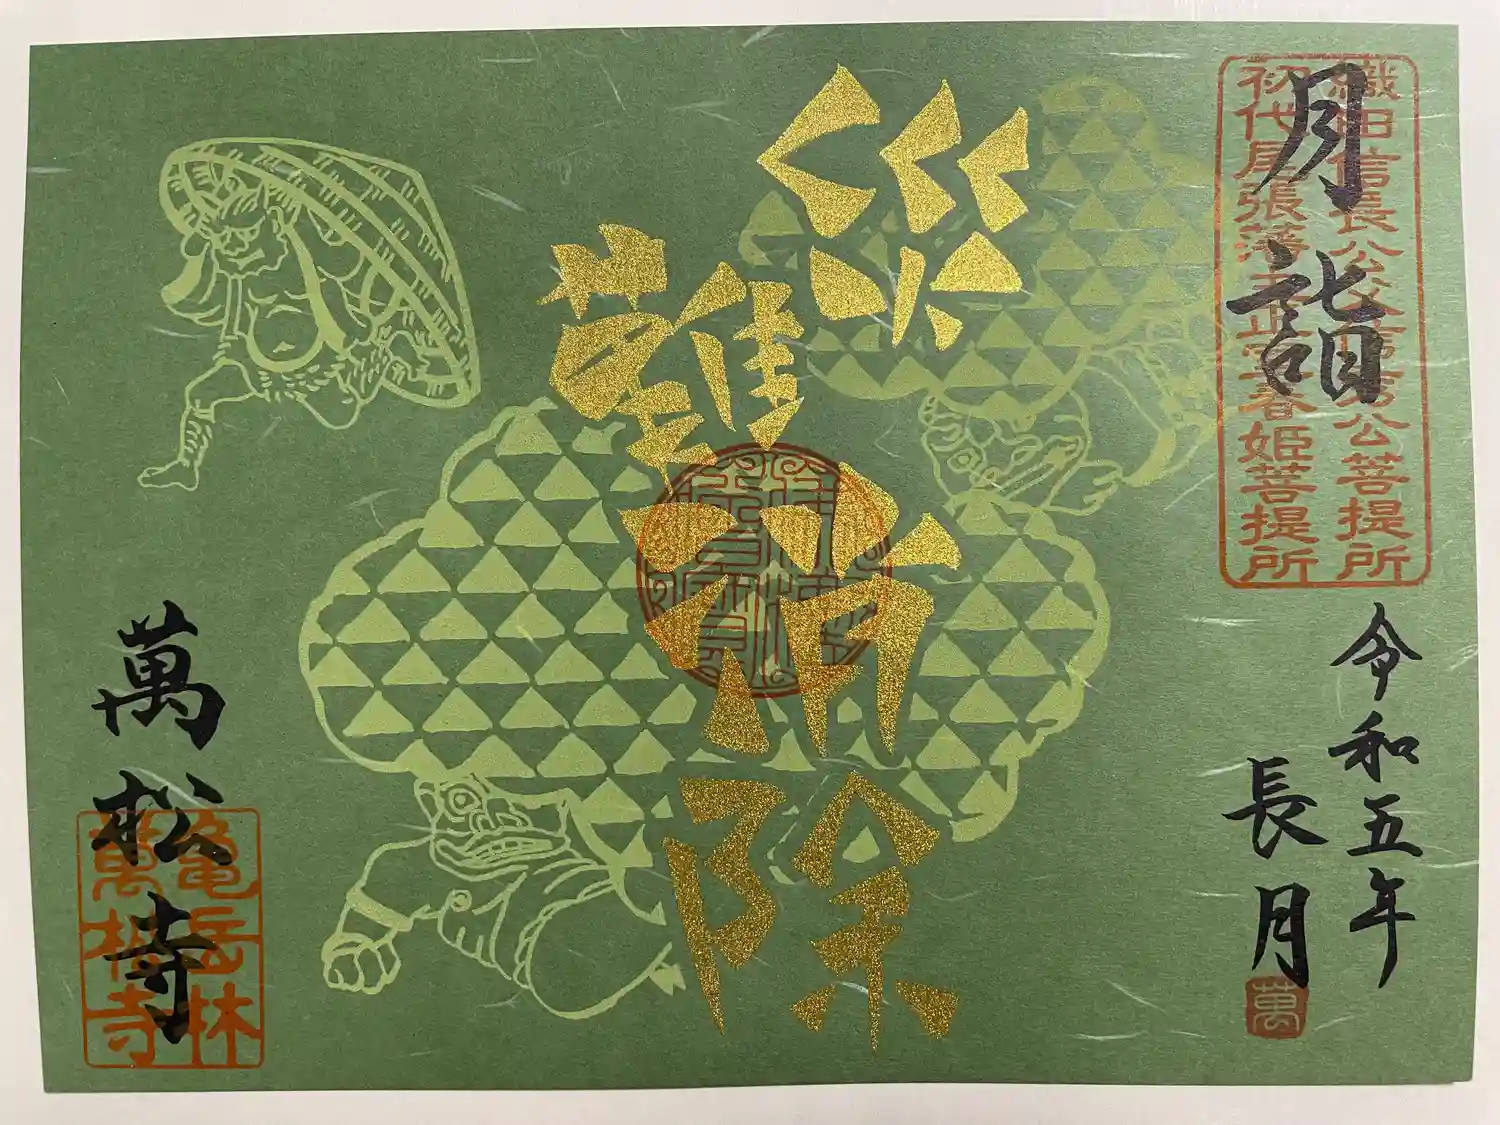 月詣
織田信長公父君信秀公菩提所
初代尾張藩主正室春姫菩提所
令和五年
長月
萬
災難消除
萬松寺
亀岳林
萬松寺